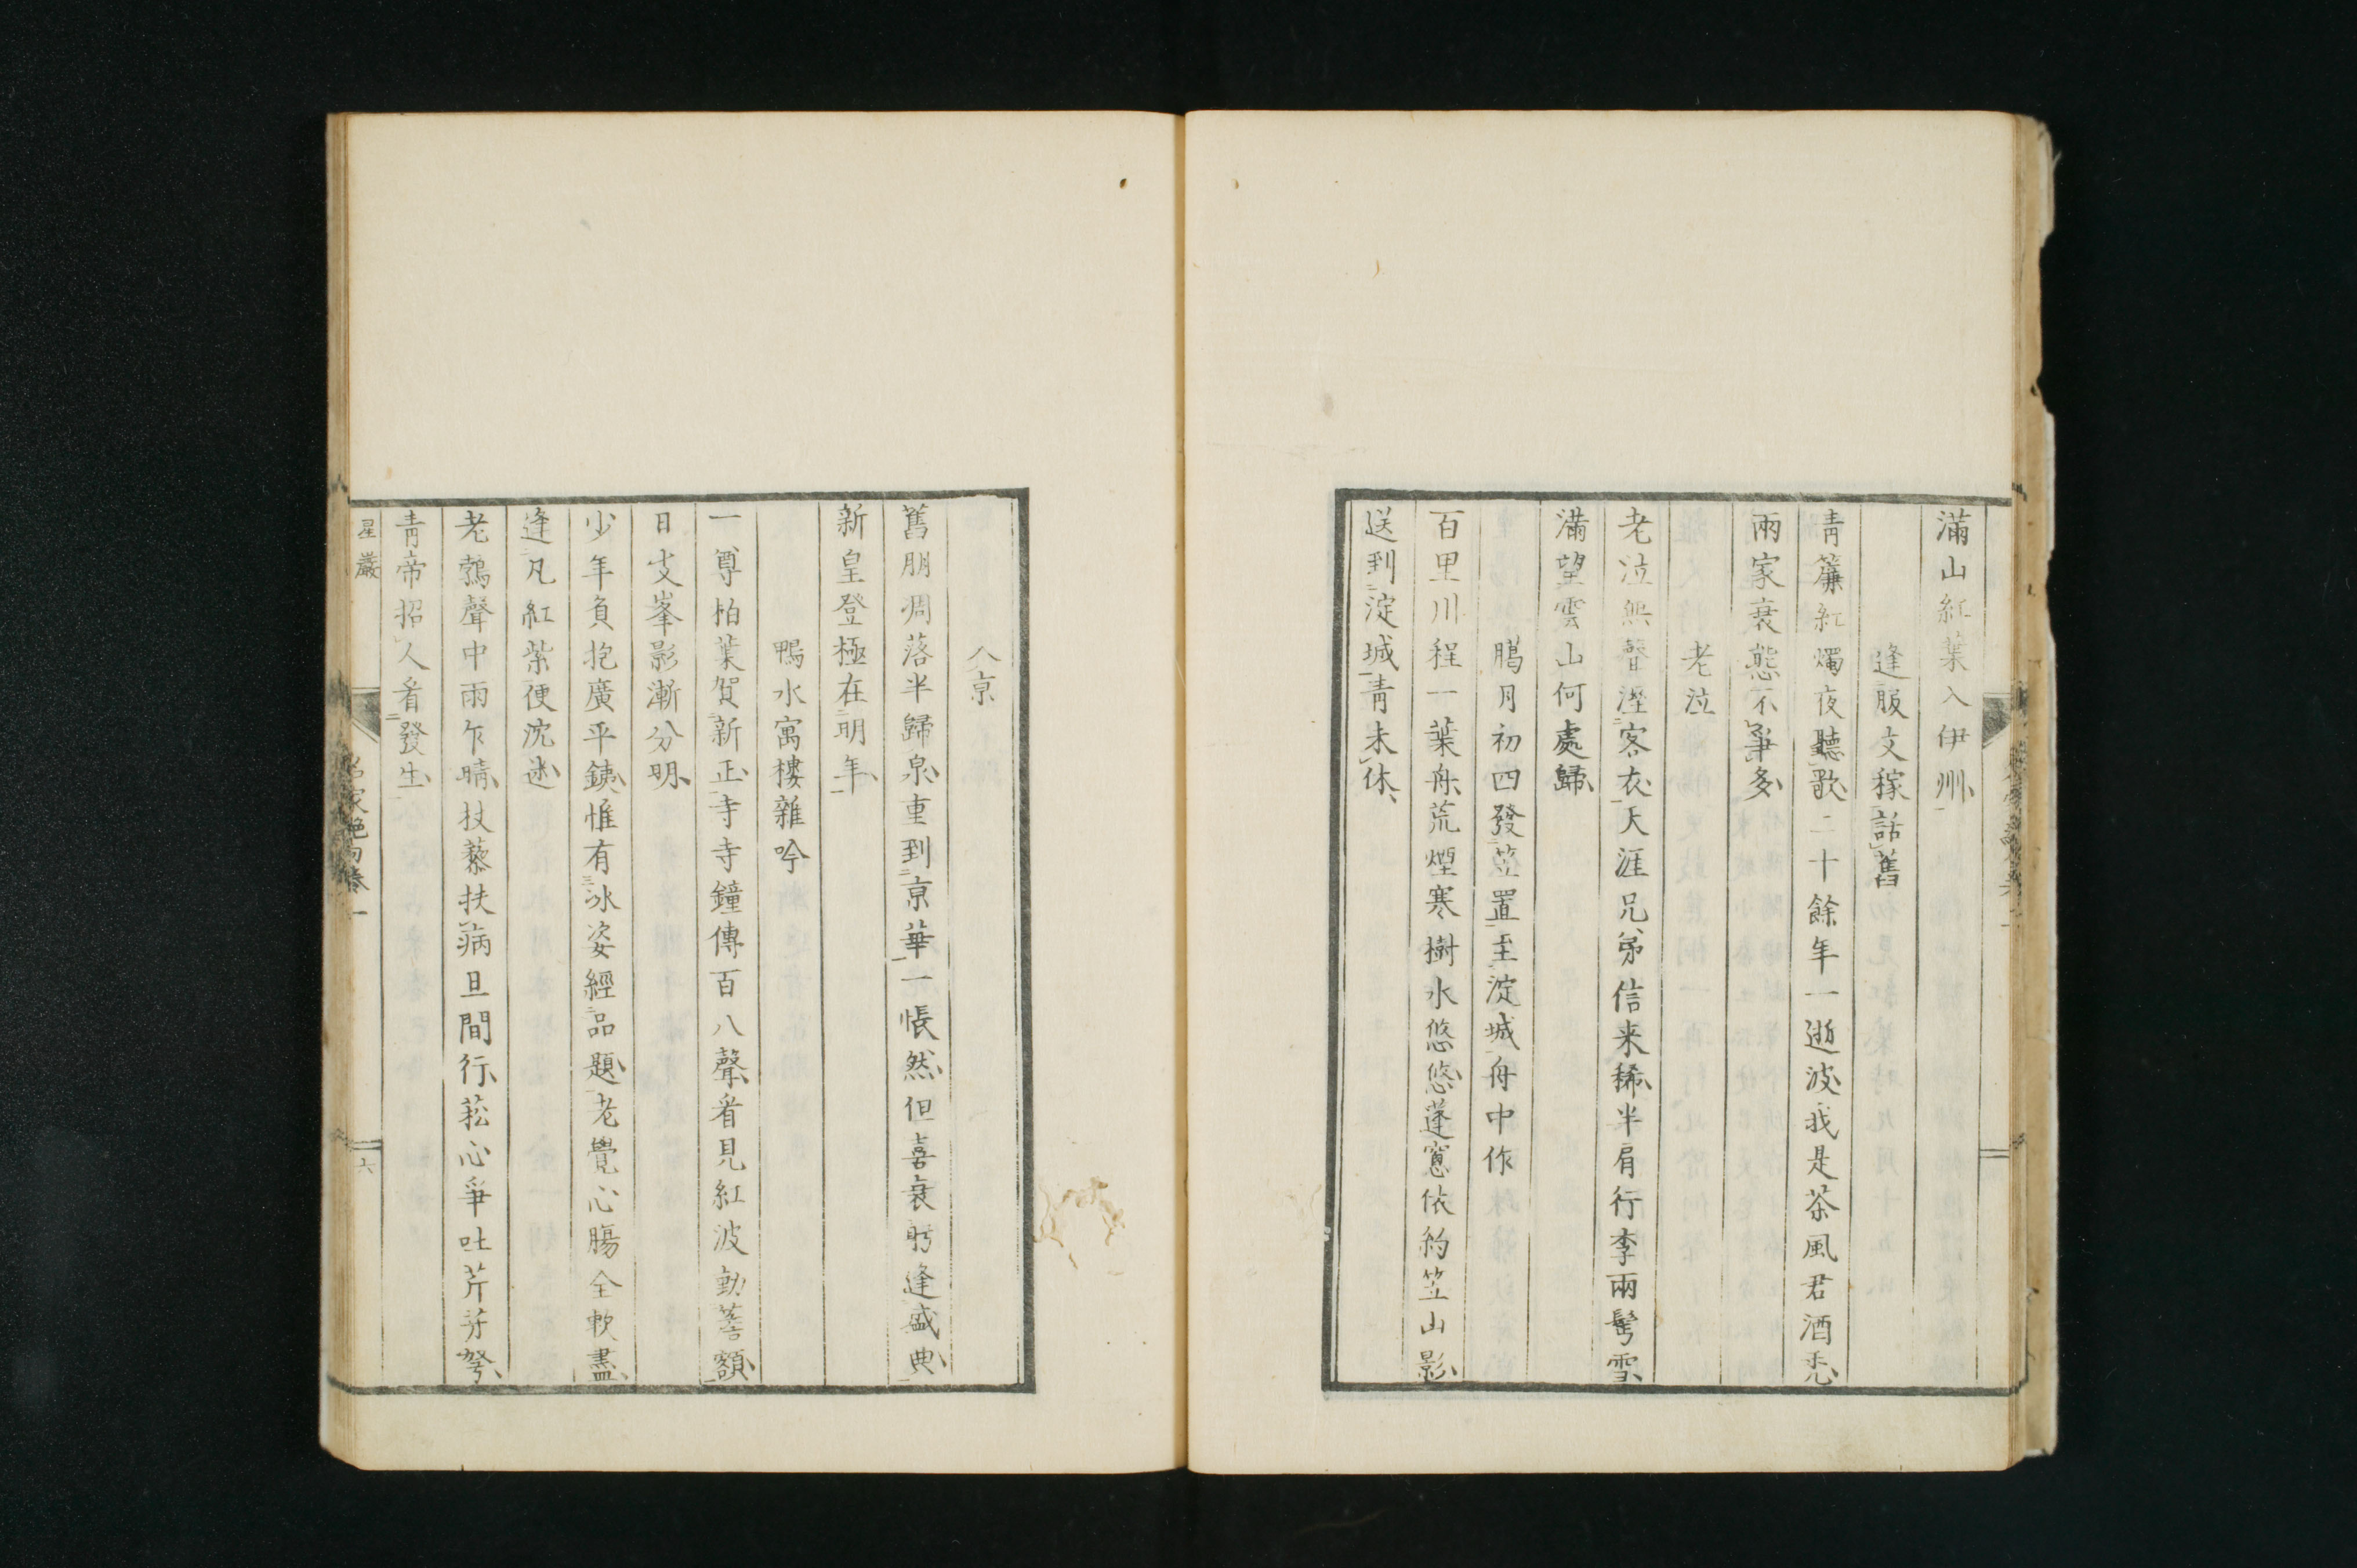 滿山紅葉入伊州
逢服文稼話舊
青簾紅燭夜聽歌二十餘年一逝波我是茶風君酒禿
兩家衰態不爭多
老泣
老泣無聲溼客衣天涯兄弟信来稀半肩行李兩髩雪
滿望雲山何處歸
臈月初四發笠置至淀城舟中作
百里川程一葉舟荒煙寒樹水悠悠蓬窻依約笠山影
送到淀城青未休
入京
舊朋凋落半歸泉重到京華一悵然但喜衰躬逢盛典
新皇登極在明年
鴨水寓樓雜吟
一尊柏葉賀新正寺寺鐘傳百八聲看見紅波動簷額
日支峯影漸分明
少年負抱廣平銕惟有冰姿經品題老覺心膓全軟盡
逢凡紅紫便沈迷
老鶯聲中雨乍晴杖藜扶病且間行菘心爭吐芹芽努
青帝招人看發生
星巖
名家絶句卷一
六